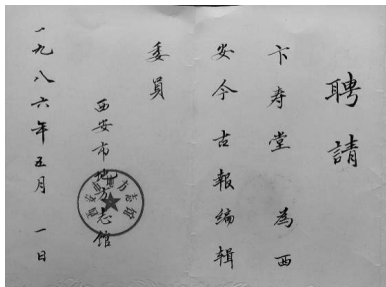 聘請
卞寿堂 為西
安今古報編輯
委員
西安市地方志館
一九八六年五月 一日